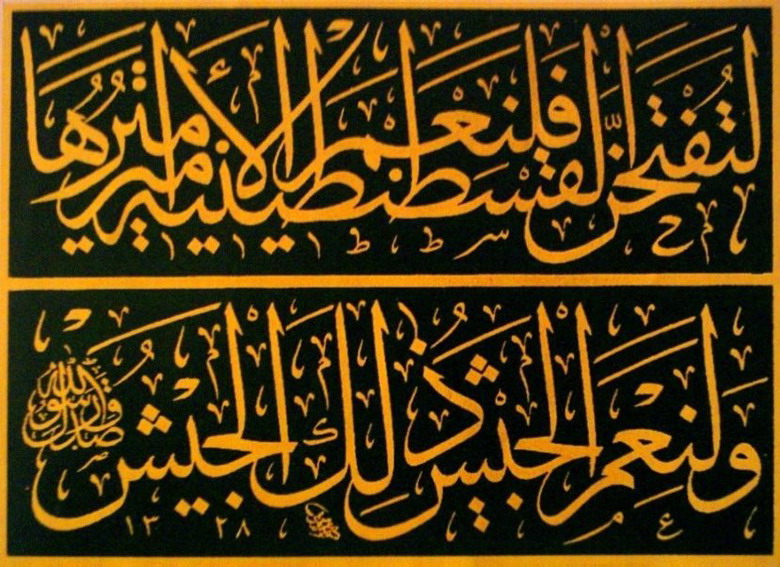 لتفتحن القسطنطينية فلنعم الأمير أميرها
ولنعم الجيش ذلك الجيش
صدق رسول الله
١٣٢٨